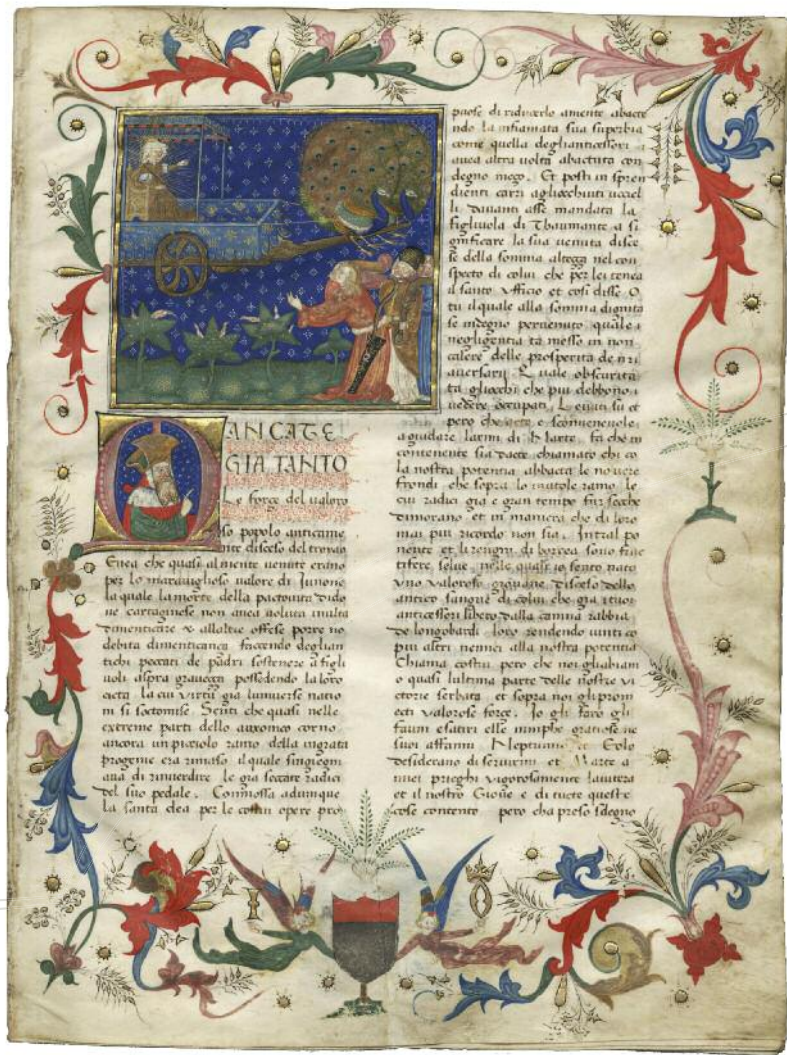 ANCATE
GIA TANTO
Le force del ualoro
so popolo anticame
nte disceso del troyano
Enea che quasi al niente uenute erano
per lo marauiglioso ualore di Iunone
la quale la morte della pactouita dido
ne cartaginese non auea uoluta inulta
dimenticare & allaltre offese porre no
debita dimenticanza faccendo deglian
tichi peccati de padri sostenere a figli
uoli aspra grauecza possedendo la loro
cieta la cui virtu gia luniuerse natio
ni si sottomise Senti che quasi nelle
extreme parti dello auxonico corno
ancora un piccolo ramo della ingrata
progenie era rimaso il quale singiegni
aua di rinuerdire le gia seccate radici
del suo pedale. Commossa adunque
la santa dea per le costui opere pro
puose di riducerlo aniente abacte
ndo la infiamata sua superbia
come quella degliantecessori
auea altra uolta abactuta con
degno mezo. Et posti in spren
dienti carri agliocchiuti uccel
li dauanti asse mandata la
figliuola di Thaumante a si
gnificare la sua uenuta disce
se della somma altezza nel con
specto di colui che per lei tenea
il santo vfficio et cosi disse O
tu il quale alla somma dignita
se indegno peruenuto quale
negligentia ta messo in non
calere delle prosperita de nri
auersarij Quale obscurita
ta gliocchi che piu debbono
uedere occupati Leuati su et
pero che arte e sconueneuole
a guidare larmi di Marte fa che in
contenente sia da te chiamato chi co
la nostra potentia abbacta le nouere
frondi che sopra lo inutole ramo le
cui radici gia e gran tempo fur secche
dimorano et in maniera che di loro
mai piu ricordo non sia. Intral po
nente et li regni di borrea sono frut
tifere selue nelle quali io sento nato
vno valoroso giouane disceso dello
antico sangue di colui che gia i tuoi
antecessori libero dalla canina rabbia
de longobardi loro rendendo uinti co
piu altri nemici alla nostra potentia
Chiama costui pero che noi gliabiam
o quasi lultima parte delle nostre vi
ctorie serbata et sopra noi gli prom
ecti valorose force. Io gli faro gli
fauni e satiri elle nimphe gratiose ne
suoi affanni Neptunno et Eolo
desiderano di seruirmi et Marte a
miei prieghi vigorosamente lautera
et il nostro Gioue e di tucte queste
cose contento pero cha preso sdegno